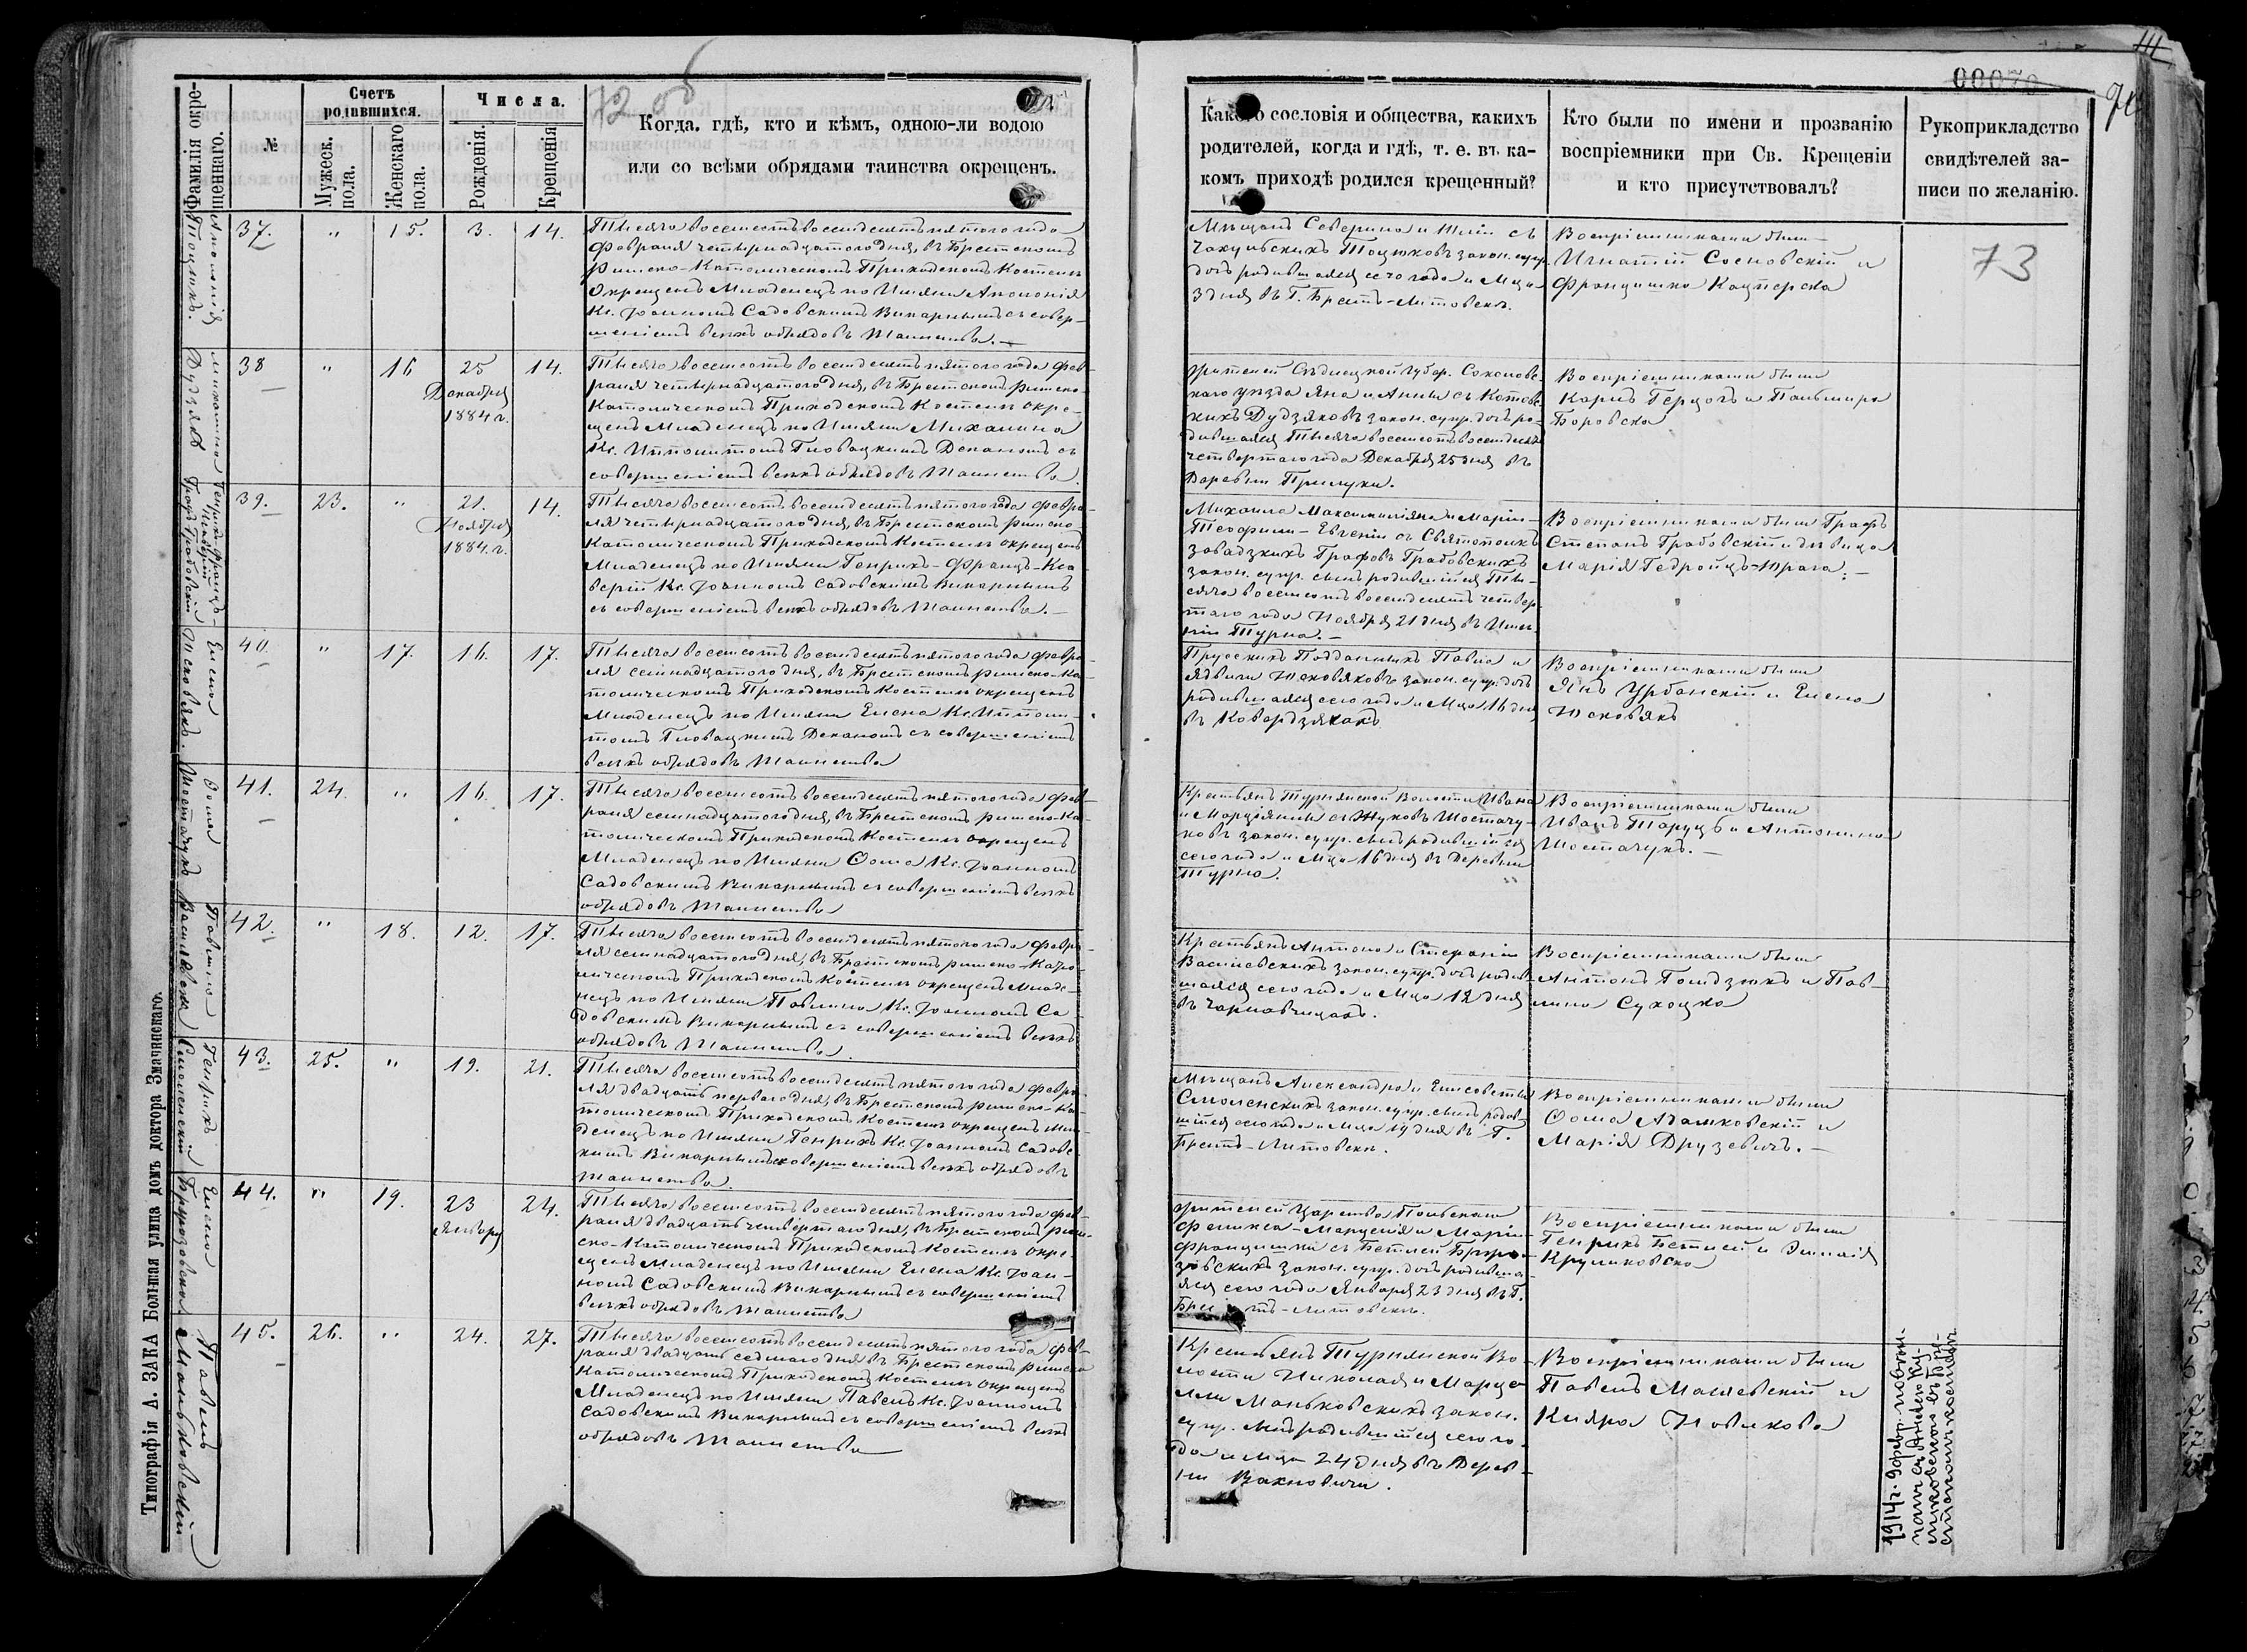 72 об
Фамилія и имя окрещеннаго.
№
Счетъ родившихся.
Мужеск. пола.
Женскаго пола.
Числа.
Рожденія.
Крещенія
Когда. гдѣ, кто и кѣмъ, одною-ли водою
или со всѣми обрядами таинства окрещенъ.
Аполонія
Тоцюкъ.
37. " 15. 3. 14.
Тысяча восемсотъ восемдесятъ пятого года
Февраля четырнадцатого дня, въ Брестскомъ
Римско-Католическомъ Приходскомъ Костелѣ
Окрещенъ Младенецъ по Имяни Аполонія
Кс. Іоанномъ Садовскимъ Викарнымъ съ совер-
шеніемъ всѣхъ обрядовъ Таинства.
Михалина
Дудзякъ
38 " 16 25 Декабря 1884 г. 14.
Тысяча восемсотъ восемдесятъ пятого года Фев-
раля четырнадцатого дня, въ Брестскомъ Римско-
Католическомъ Приходскомъ Костелѣ окре-
щенъ Младенецъ по Имяни Михалина
Кс. Ипполитомъ Гловацкимъ Деканомъ съ
совершеніемъ всѣхъ обрядовъ Таинства.
Генрихъ-Францъ-
Ксаверій
Графъ Грабовскій
39. 23. " 21. Ноября 1884. г. 14.
Тысяча восемсотъ восемдесятъ пятого года Февра-
ля четырнадцатого дня, въ Брестскомъ Римско-
Католическомъ Приходскомъ Костелѣ окрещенъ
Младенецъ по Имяни Генрихъ-Францъ-Кса-
верій Кс. Іоанномъ Садовскимъ Викарнымъ
съ совершеніемъ всѣхъ обрядовъ Таинства.
Елена
40. " 17. 16. 17.
Тысяча восемсотъ восемдесятъ пятого года Февра-
ля семнадцатого дня, въ Брестскомъ Римско-Ка-
толическомъ Приходскомъ Костелѣ окрещенъ
Младенецъ по Имяни Елена Кс. Ипполи-
томъ Гловацкимъ Деканомъ съ совершеніемъ
всѣхъ обрядовъ Таинства
Ѳома
Шостачукъ
41. 24. " 16. 17.
Тысяча восемсотъ восемдесятъ пятого года Фев-
раля семнадцатого дня, въ Брестскомъ Римско-Ка-
толическомъ Приходскомъ Костелѣ окрещенъ
Младенецъ по Имяни Ѳома Кс. Іоанномъ
Садовскимъ Викарнымъ съ совершеніемъ всѣхъ
обрядовъ Таинства
Павлина
Василевска
42. " 18. 12. 17.
Тысяча восемсотъ восемдесятъ пятого года Февра-
ля семнадцатого дня, въ Брестскомъ Римско-Като-
лическомъ Приходскомъ Костелѣ окрещенъ Младе-
нецъ по Имяни Павлина Кс. Іоанномъ Са-
довскимъ Викарнымъ съ совершеніемъ всѣхъ
обрядовъ Таинства.
Генрихъ
Смоленскій
43. 25. " 19. 21.
Тысяча восемсотъ восемдесятъ пятого года Февра-
ля двадцать перваго дня, въ Брестскомъ Римско-Ка-
толическомъ Приходскомъ Костелѣ окрещенъ Мла-
денецъ по Имяни Генрихъ Кс. Іоанномъ Садовс-
кимъ Викарнымъ совершеніемъ всѣхъ обрядовъ
Таинства.
Елена
44. " 19. 23 Января 24.
Тысяча восемсотъ восемдесятъ пятого года Фев-
раля двадцать четвертаго дня, въ Брестскомъ Рим-
ско-Католическомъ Приходскомъ Костелѣ окре-
щенъ Младенецъ по Имяни Елена Кс. Іоан-
номъ Садовскимъ Викарнымъ съ совершеніемъ
всѣхъ обрядовъ Таинства
Павелъ
Маньковскій
45. 26. " 24. 27.
Тысяча восемсотъ восемдесятъ пятого года Фев-
раля двадцать седмаго дня въ Брестскомъ Римско
Католическомъ Приходскомъ Костелѣ окрещенъ
Младенецъ по Имяни Павелъ Кс. Іоанномъ
Садовскимъ Викарнымъ съ совершеніемъ всѣхъ
обрядовъ Таинства
Типографія А. ЗАКА Большая улица домъ доктора Змачинскаго.
00070
73
Какого сословія и общества, какихъ
родителей, когда и гдѣ, т. е. въ ка-
комъ приходѣ родился крещенный?
Кто были по имени и прозванію
воспріемники при Св. Крещеніи
и кто присутствовалъ?
Рукоприкладство
свидѣтелей за-
писи по желанію.
Мѣщанъ Северина и съ
Тоцюковъ закон. супр.
дочь родившаяся сего года и Мца
3 дня въ Г. Брестъ-Литовскѣ.
Воспріемниками были
Игнатій Сосновскій и
Францишка Кацперска
Жителей Сѣдлецкой Губер. Соколовс-
каго уѣзда Яна и Анны съ Котовс-
кихъ Дудзяковъ закон. супр. дочь ро-
дившаяся Тысяча восемсотъ восемдесятъ
четвертаго года Декабря 25 дня въ
Деревни Прилуки.
Воспріемниками были
Карлъ Герцогъ и Пальмира
Боровска
Михаила Максимиліяна и Маріи-
Теофили-Евгеніи съ Святополкъ
Завадзкихъ Графовъ Грабовскихъ
закон. супр. сынъ родившійся Ты-
сяча восемсотъ восемдесятъ четвер-
таго года Ноября 21 дня въ Имѣ-
ніи Турна.
Воспріемниками были Графъ
Степанъ Грабовскій и дѣвица
Марія Гедройцъ-Юрага
Прусскихъ Подданныхъ Павла и
Ядвиги закон. супр. дочь
родившаяся сего года и Мца 16 дня
въ Ковердзякахъ
Воспріемниками были
Янъ Урбанскій и Елена
Крестьянъ Турнянской Волости Ивана
и Марціянны съ Жуковъ Шостачу-
ковъ закон. супр. сынъ родившійся
сего года и Мца 16 дня въ Деревни
Турна.
Воспріемниками были
Иванъ Таруць и Антонина
Шостачукъ.
Крестьянъ Антона и Стефаніи
Василевскихъ закон. супр. дочь родив-
шаяся сего года и Мца 12 дня
въ Чернавчицахъ.
Воспріемниками были
Антонъ Голядзюкъ и Пав-
лина Сухоцка
Мѣщанъ Александра и Елисаветы
Смоленскихъ закон. супр. сынъ родив-
шійся сего года и Мца 19 дня въ Г.
Брестъ-Литовскѣ.
Воспріемниками были
Ѳома Адамковскій и
Марія Друзевичъ.
Жителей Царства Польскаго
Феликса-Марцелія и Маріи
Францишки съ Бетлей
закон. супр. дочь родивша-
яся сего года Января 23 дня въ Г.
Брестъ-Литовскѣ.
Воспріемниками были
Генрихъ Бетлей и Эмилія
Круликовска
Крестьянъ Турнянской Во-
лости Николая и Марце-
ли Маньковскихъ закон.
супр. сынъ родившійся сего го-
да и Мца 24 дня въ Дерев-
ни Вахновичи.
Воспріемниками были
Павелъ Маліевскій и
Кляра Новикова
1914 г. 9 февр. повѣн-